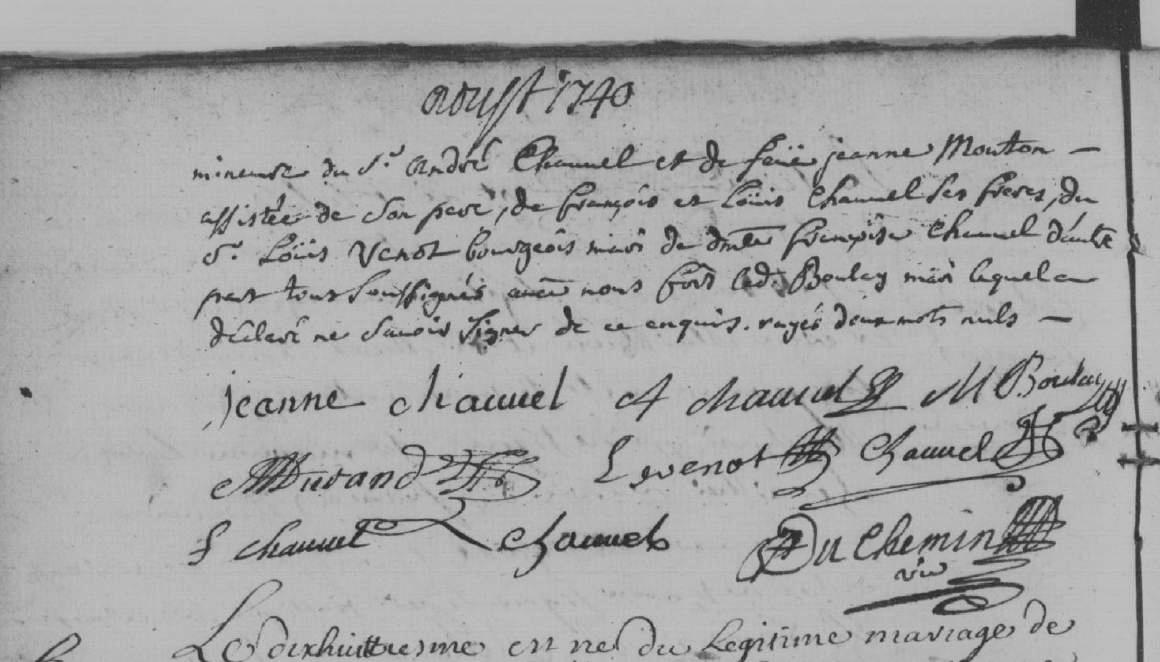 aoust 1740
mineure du Sr. André Chauvel et de feüe jeanne Moutton —
assistée de son pere, de françois et Loüis Chauvel ses freres, du
Sr. Loüis Venot bourgeois mari de dmlle françoise Chauvel d'autre
part tous soussignés avec nous fors led. Boulay mari lequel a
déclaré ne savoir signer de ce enquis. rayés deux mots nuls —
jeanne chauvel A chauvel M Boulay
Durand L venot Chauvel
f chauvel chauvel DuChemin
vic
Le dixhuittiesme est né du Legitime mariage de